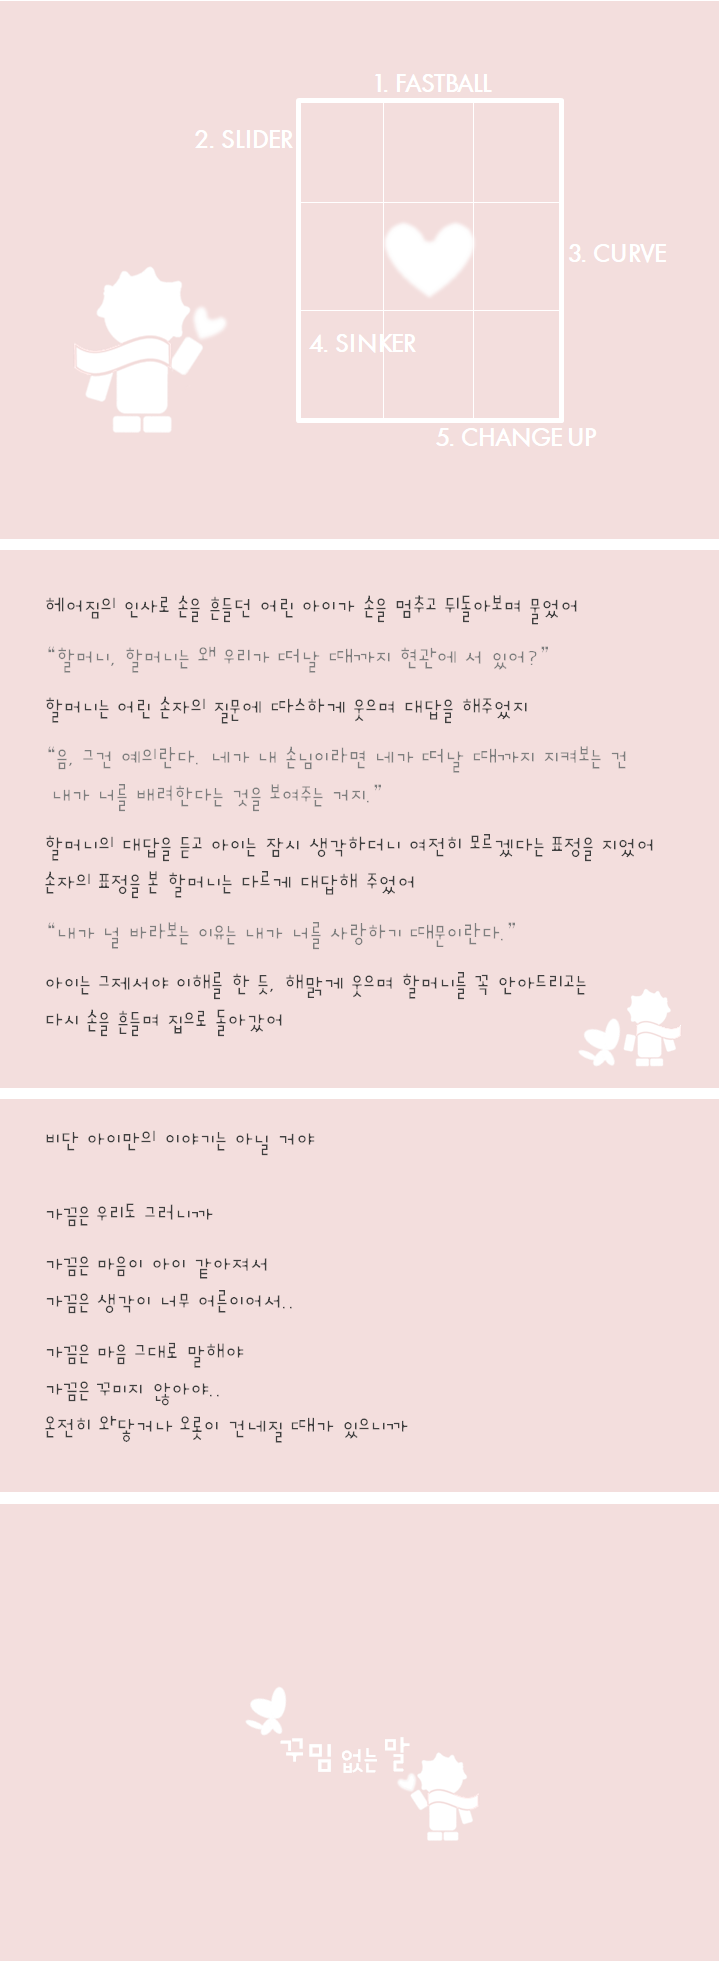 1. FASTBALL
2. SLIDER
3. CURVE
4. SINKER
5. CHANGE UP
헤어짐의 인사로 손을 흔들던 어린 아이가 손을 멈추고 뒤돌아보며 물었어
“할머니, 할머니는 왜 우리가 떠날 때까지 현관에 서 있어?”
할머니는 어린 손자의 질문에 따스하게 웃으며 대답을 해주었지
“음, 그건 예의란다. 네가 내 손님이라면 네가 떠날 때까지 지켜보는 건
내가 너를 배려한다는 것을 보여주는 거지.”
할머니의 대답을 듣고 아이는 잠시 생각하더니 여전히 모르겠다는 표정을 지었어
손자의 표정을 본 할머니는 다르게 대답해 주었어
“내가 널 바라보는 이유는 내가 너를 사랑하기 때문이란다.”
아이는 그제서야 이해를 한 듯, 해맑게 웃으며 할머니를 꼭 안아드리고는
다시 손을 흔들며 집으로 돌아갔어
비단 아이만의 이야기는 아닐 거야
가끔은 우리도 그러니까
가끔은 마음이 아이 같아져서
가끔은 생각이 너무 어른이어서..
가끔은 마음 그대로 말해야
가끔은 꾸미지 않아야..
온전히 와닿거나 오롯이 건네질 때가 있으니까
꾸밈 없는 말